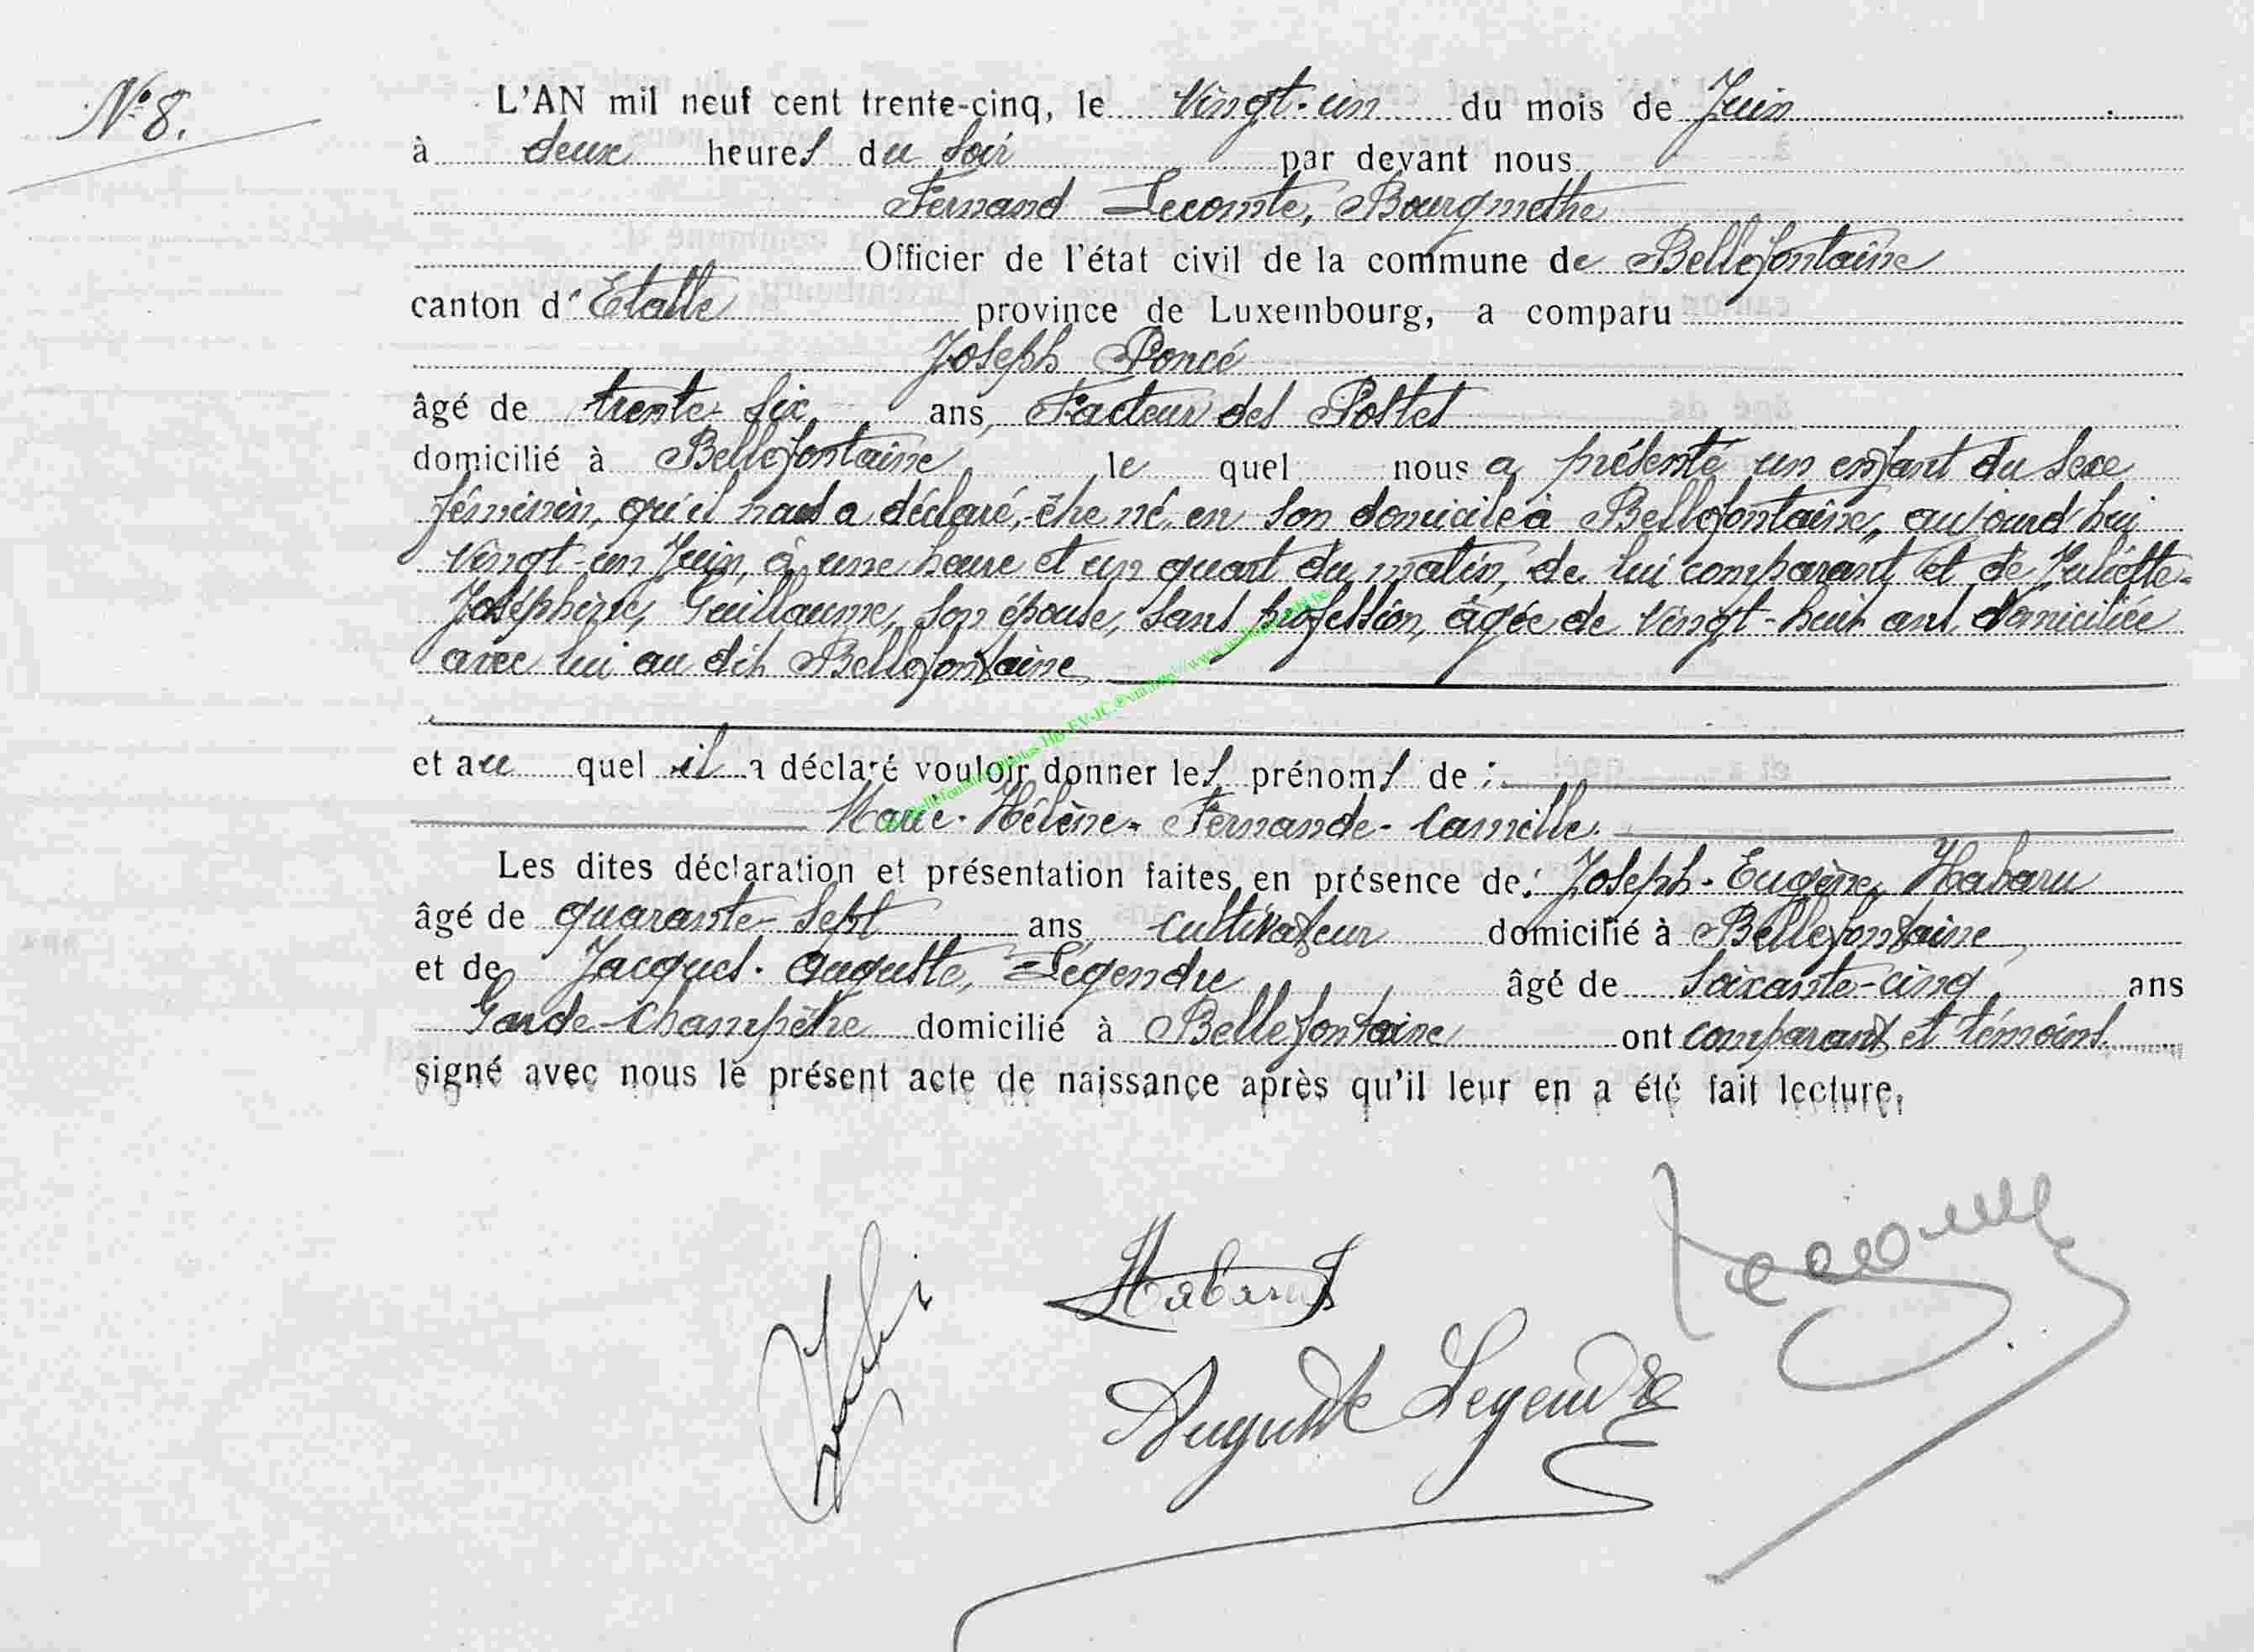 N° 8.
L'AN mil neuf cent trente-cinq, le vingt-un du mois de Juin
à deux heures du soir par devant nous
Fernand Lecomte, Bourgmethe
Officier de l'état civil de la commune de Bellefontaine
canton d'Etalle province de Luxembourg, a comparu
Joseph Poncé
âgé de trente-six ans, Facteur des Postes
domicilié à Bellefontaine le quel nous a présenté un enfant du sexe
féminin, qu'il nous a déclaré, être né, en son domicile à Bellefontaine, aujourd'hui
vingt-un Juin, à une heure et un quart du matin, de lui comparant et de Juliette-
Joséphine, Guillaume, son épouse, sans profession, âgée de vingt-huit ans, domiciliée
avec lui au dit Bellefontaine
et au quel il a déclaré vouloir donner les prénoms de :
Marie-Hélène-Fernande-Camille.
Les dites déclaration et présentation faites en présence de: Joseph-Eugène, Habaru
âgé de quarante-sept ans, cultivateur domicilié à Bellefontaine,
et de Jacques-Auguste, Légendre âgé de soixante-cinq ans
Garde-Champêtre domicilié à Bellefontaine ont comparant et témoins
signé avec nous le présent acte de naissance après qu'il leur en a été fait lecture.
Habaru
Auguste Legendre